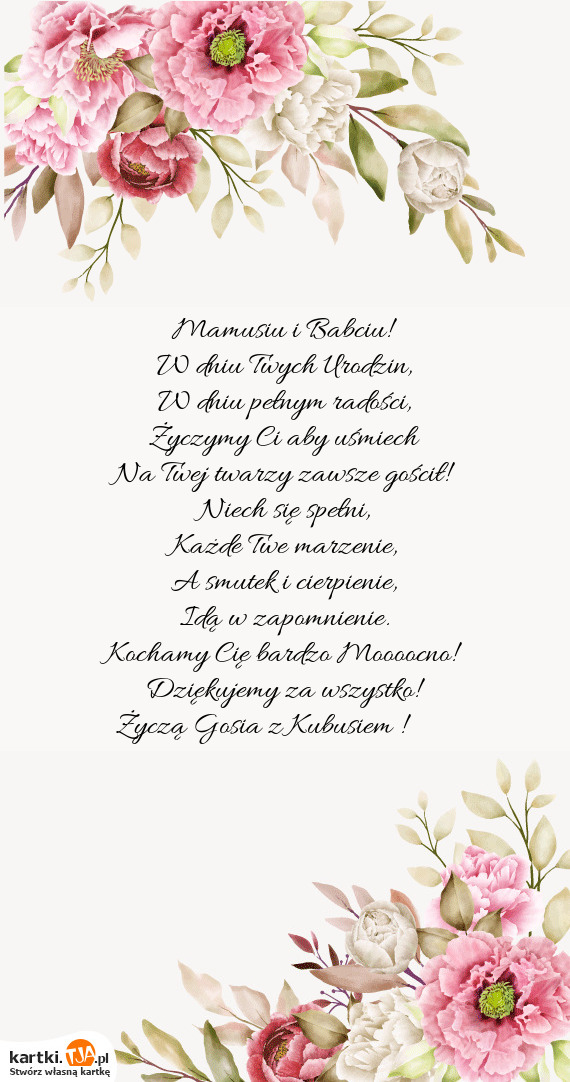 Mamusiu i Babciu!
W dniu Twych Urodzin,
W dniu pełnym radości,
Życzymy Ci aby uśmiech
Na Twej twarzy zawsze gościł!
Niech się spełni,
Każde Twe marzenie,
A smutek i cierpienie,
Idą w zapomnienie.
Kochamy Cię bardzo Moooocno!
Dziękujemy za wszystko!
Życzą Gosia z Kubusiem !
kartki.TJA.pl
Stwórz własną kartkę